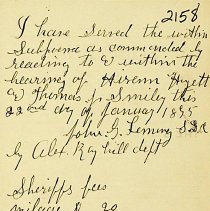 2158
I have served the within
Subpoena as commanded by
reading to & within the
hearing of Hiram Hyatt
& Thomas J Smiley this
22nd day of January 1855
John G. Fleming S.B.C
by Alex Rayhill dept
Sheriffs fees
milage